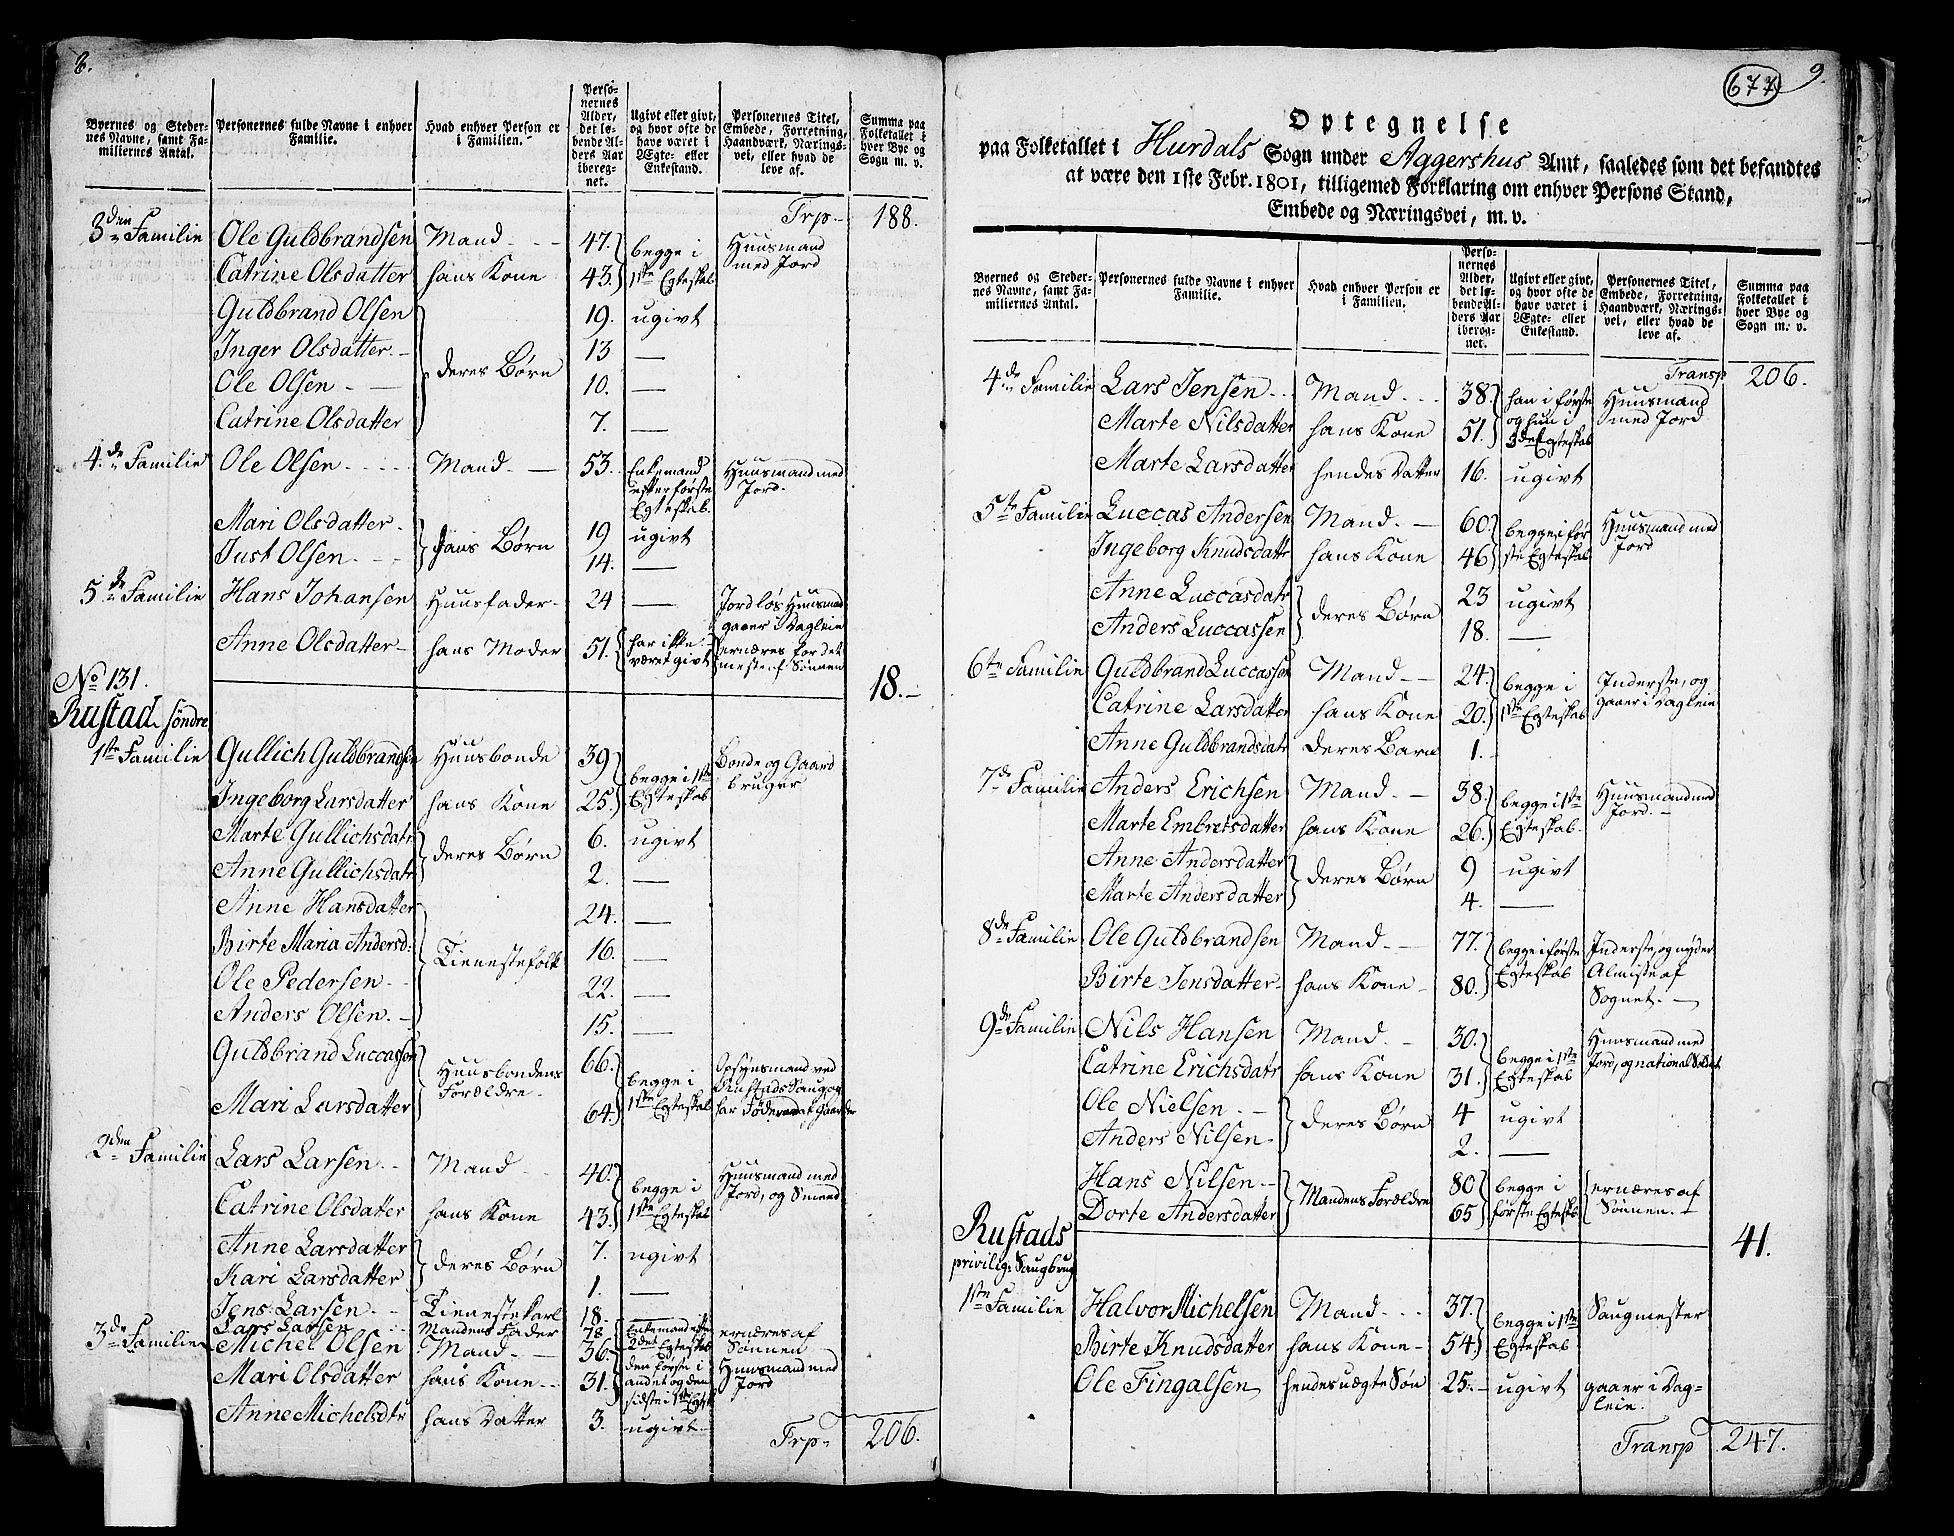 8.
Byernes og Stedernes Navne, samt Familiernes Antal. | Personernes fulde Navne i enhver Familie. | Hvad enhver Person er i Familien. | Personernes Alder, det løbende Alders Aar iberegnet. | Ugivt eller givt, og hvor ofte de have været i Ægte- eller Enkestand. | Personernes Titel, Embede, Forretning, Haandværk, Næringsvei, eller hvad de leve af. | Summa paa Folketallet i hver Bye og Sogn m. v.
Trp. 188.
3den Familie Ole Guldbrandsen Mand 47. begge i Huusmand med Jord
Catrine Olsdatter hans Kone 43. 1ste Egteskab
Guldbrand Olsen 19. ugivt
Inger Olsdatter. deres Børn 13 —
Ole Olsen 10. —
Catrine Olsdatter 7. —
4de Familie Ole Olsen Mand 53. Enkemand efter første Egteskab. Huusmand med Jord.
Mari Olsdatter hans Børn 19 ugivt
Just Olsen 14. —
5te Familie Hans Johansen Huusfader 24 — Jordløs Huusmand gaaer i Dagleie
Anne Olsdatter hans Moder 51. har ikke været givt ernæres for det meste af Sønnen
No 131. 18.
Rustad søndre
1ste Familie Gullich Guldbrandsen Huusbonde 39 begge i 1ste Egteskab Bonde og Gaardbruger
Ingeborg Larsdatter hans Kone 25.
Marte Gullichsdatr deres Børn 6. ugivt
Anne Gullichsdatr 2. —
Anne Hansdatter 24. —
Birte Maria Andersd: Tienestefolk 16. —
Ole Pedersen 22. —
Anders Olsen. 15. —
Guldbrand Luccassøn Huusbondens Forældre 66. begge i 1ste Egteskab Opsynsmand ved Rustads Saug og har Føderaad af Gaarden
Mari Larsdatter 64.
2den Familie Lars Larsen Mand 40. begge i 1ste Egteskab Huusmand med Jord, og Smeed
Catrine Olsdatter hans Kone 43.
Anne Larsdatter deres Børn 7. ugivt
Kari Larsdatter 1. —
Jens Larsen Tienestekarl 18. —
Lars Larsen Mandens Fader 78 Enkemand efter 2det Egteskab ernæres af Sønnen
3de Familie Michel Olsen Mand 36. den første i andet og den sidste i 1ste Egtsk Huusmand med Jord
Mari Olsdatter hans Kone 31.
Anne Michelsdtr hans Datter 3. ugivt
Trp. 206.
677 9.
Optegnelse
paa Folketallet i Hurdals Sogn under Aggershus Amt, saaledes som det befandtes
at være den 1ste Febr. 1801, tilligemed Forklaring om enhver Persons Stand,
Embede og Næringsvei, m. v.
Byernes og Stedernes Navne, samt Familiernes Antal. | Personernes fulde Navne i enhver Familie. | Hvad enhver Person er i Familien. | Personernes Alder, det løbende Alders Aar iberegnet. | Ugivt eller givt, og hvor ofte de have været i Ægte- eller Enkestand. | Personernes Titel, Embede, Forretning, Haandværk, Næringsvei, eller hvad de leve af. | Summa paa Folketallet i hver Bye og Sogn m. v.
Transp 206.
4de Familie Lars Jensen Mand 38. han i første og hun i 3de Egteskab Huusmand med Jord
Marte Nilsdatter hans Kone 51.
Marte Larsdatter hendes Datter 16. ugivt
5te Familie Luccas Andersen Mand 60. begge i første Egteskab Huusmand med Jord
Ingeborg Knudsdatr hans Kone 46
Anne Luccasdatr deres Børn 23 ugivt
Anders Luccassen 18. —
6te Familie Guldbrand Luccassen Mand 24. begge i 1ste Egteskab Inderste, og gaaer i Dagleie
Catrine Larsdatter hans Kone 20.
Anne Guldbrandsdatr deres Barn 1.
7de Familie Anders Erichsen Mand 38. begge i 1ste Egteskab. Huusmand med Jord.
Marte Embretsdatter hans Kone 26.
Anne Andersdatter deres Børn 9 ugivt
Marte Andersdatter 4. —
8de Familie Ole Guldbrandsen Mand 77. begge i første Egteskab Inderste, og nyder Almisse af Sognet.
Birte Jensdatter hans Kone 80.
9de Familie Nils Hansen Mand 30. begge i 1ste Egteskab Huusmand med Jord, og national Soldat
Catrine Erichsdatr hans Kone 31.
Ole Nielsen deres Børn 4 ugivt
Anders Nilsen 2. —
Hans Nilsen Mandens Forældre 80 begge i første Egteskb ernæres af Sønnen.
Dorte Andersdatter 65
Rustads 41.
privilig: Saugbrug
1ste Familie Halvor Michelsen Mand 37. begge i 1ste Egteskab Saugmester
Birte Knudsdatter hans Kone 54
Ole Fingalsen hendes uægte Søn 25. ugivt gaaer i Dagleie.
Transp 247.